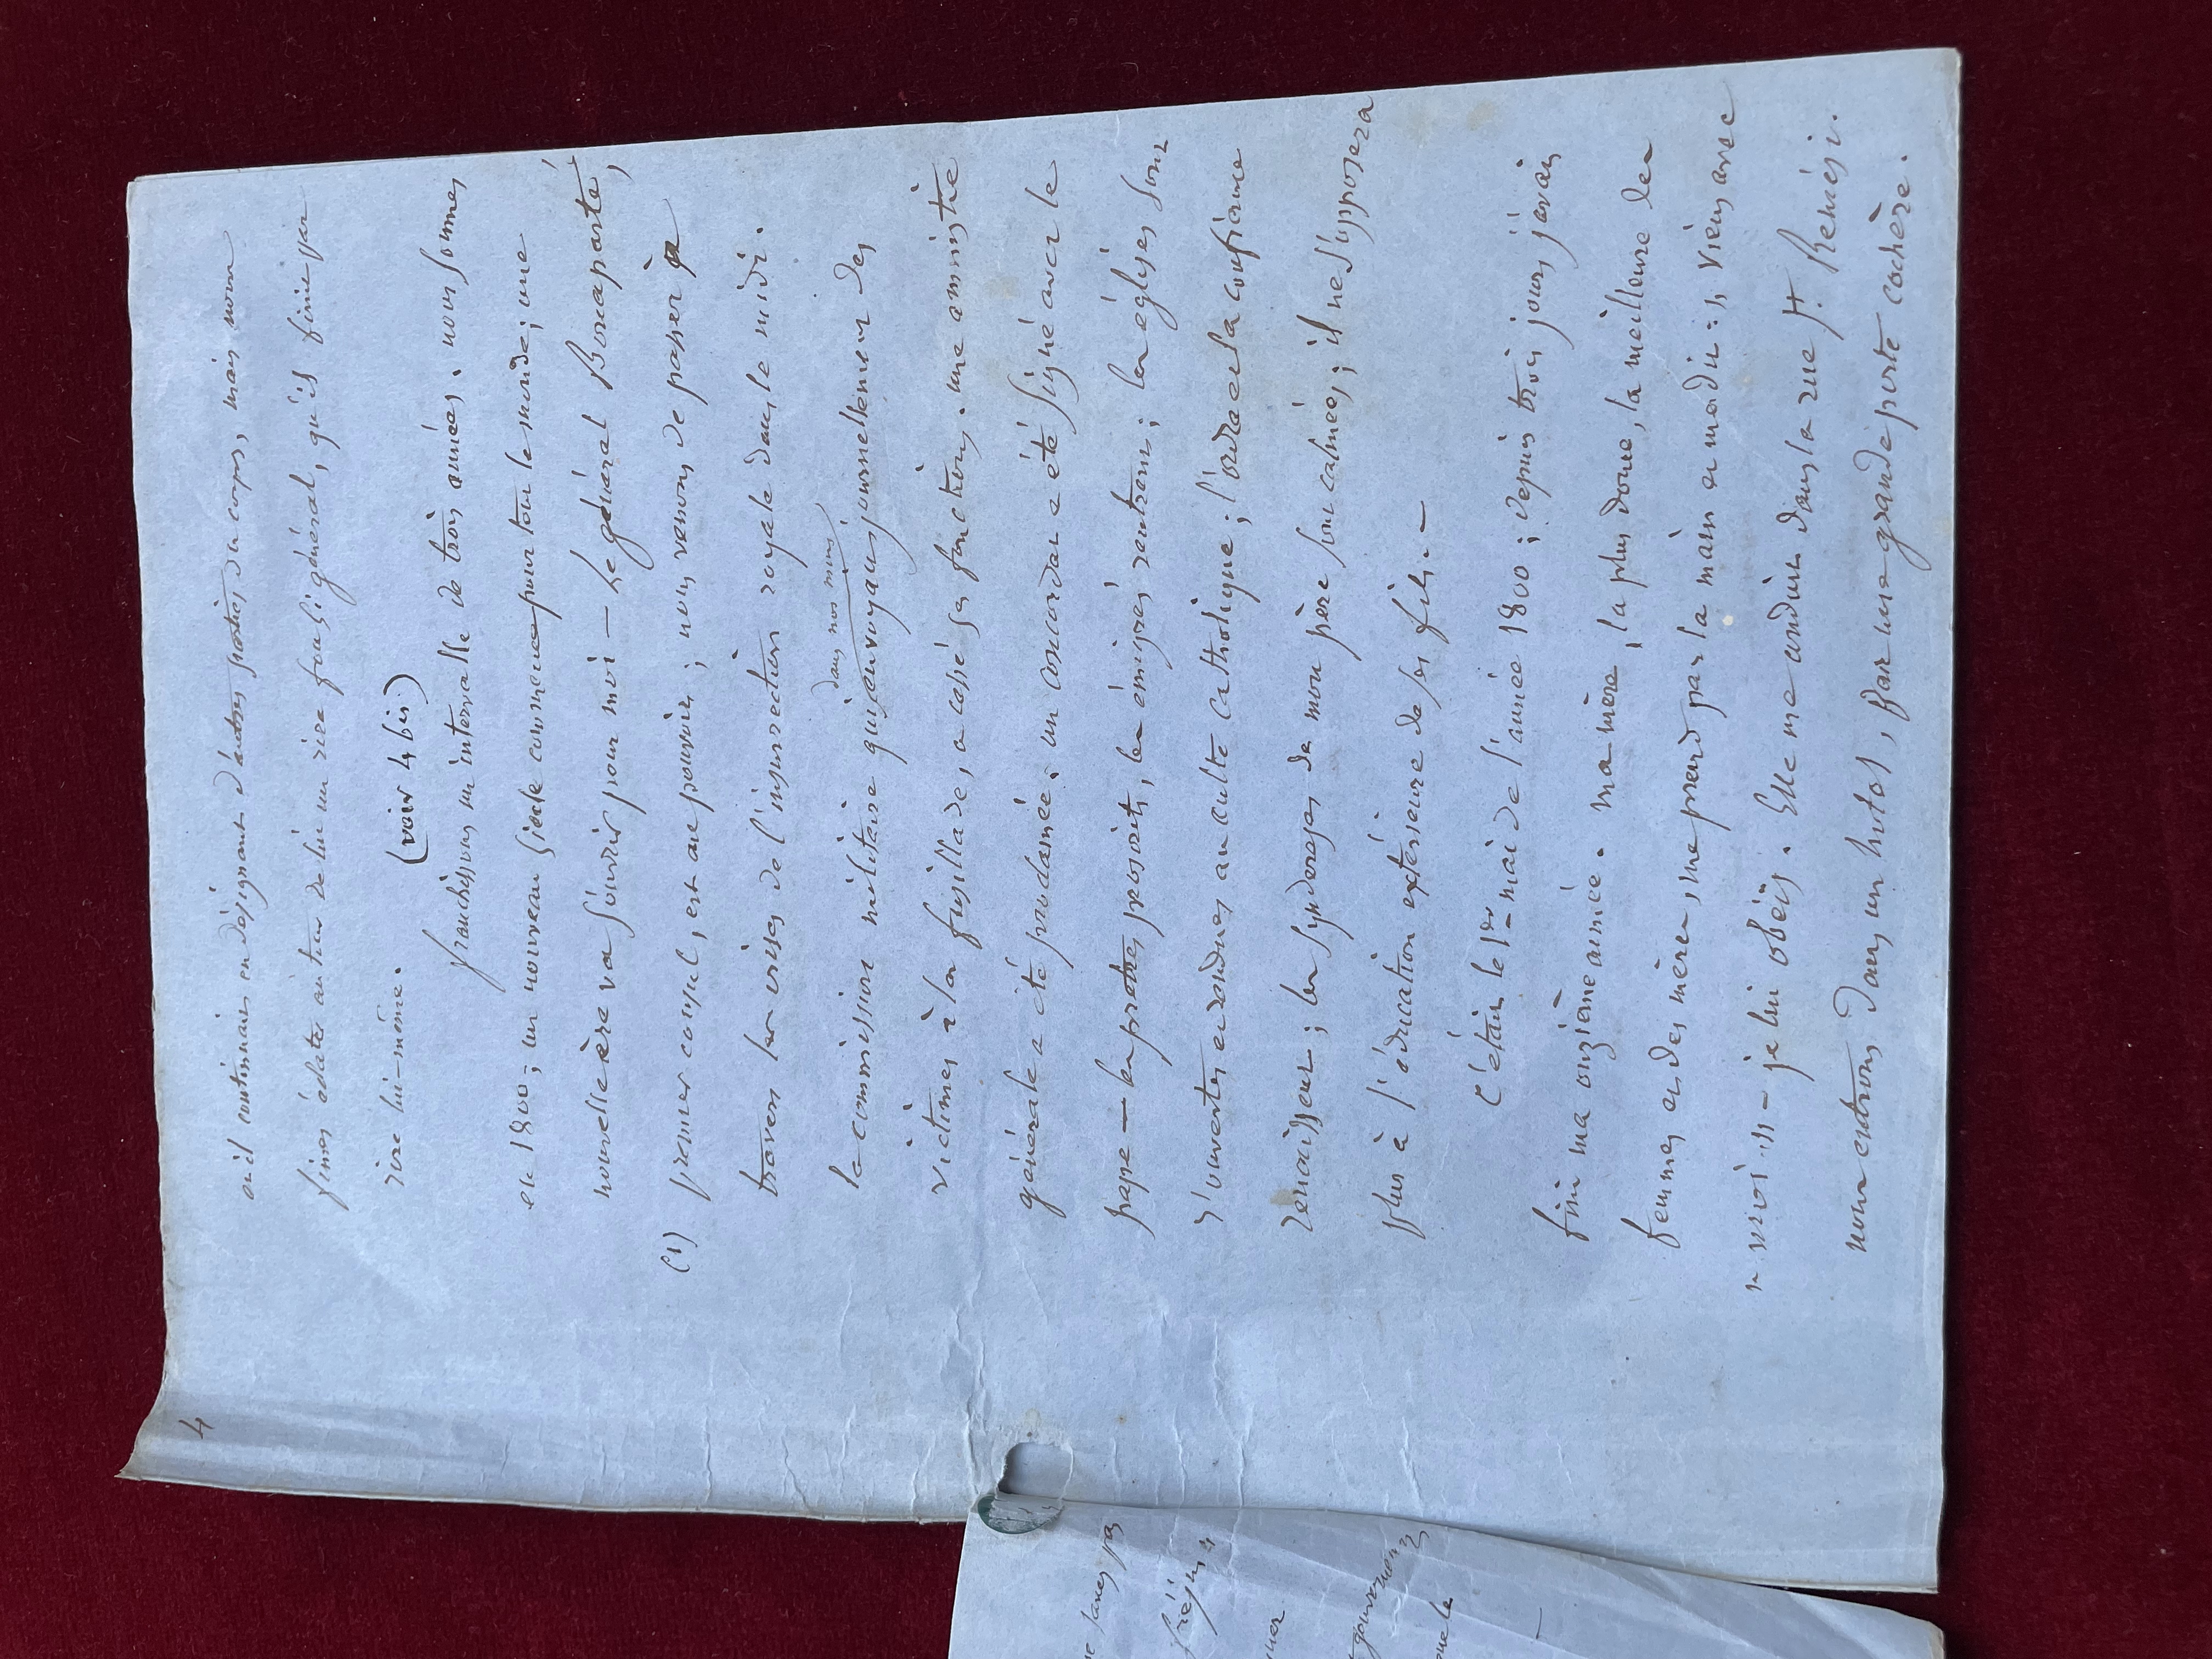 4
où il continuait en désignant d'autres parties du corps, mais nous
fîmes éclater autour de lui un rire fou si général, qu'il finit par
rire lui-même.
(voir 4 bis)
franchissons un intervalle de trois années. nous sommes
en 1800 ; un nouveau siècle commence pour tout le monde ; une
nouvelle ère va s'ouvrir pour moi — Le général Bonaparte,
(1) premier consul, est au pouvoir ; nous venons de passer à
travers les crises de l'insurrection royale dans le midi.
dans nos murs
la commission militaire qui envoyait journellement des
victimes à la fusillade, a cessé ses fonctions. une amnistie
générale a été proclamée. un concordat a été signé avec le
pape — les prêtres proscrits, les émigrés rentrent ; les églises sont
r'ouvertes et rendues au culte catholique ; l'ordre et la confiance
renaissent ; les syndereses de mon père sont calmées ; il ne s'opposera
plus à l'éducation extérieure de ses fils. —
C'était le 1er mai de l'année 1800 ; depuis trois jours j'avais
fini ma onzième année. ma mère, la plus douce, la meilleure des
femmes et des mères, me prend par la main et me dit : " viens avec
" moi " — je lui obéis. Elle me conduit dans la rue St. Remési.
nous entrons dans un hotel, par une grande porte cochère.
fréjus